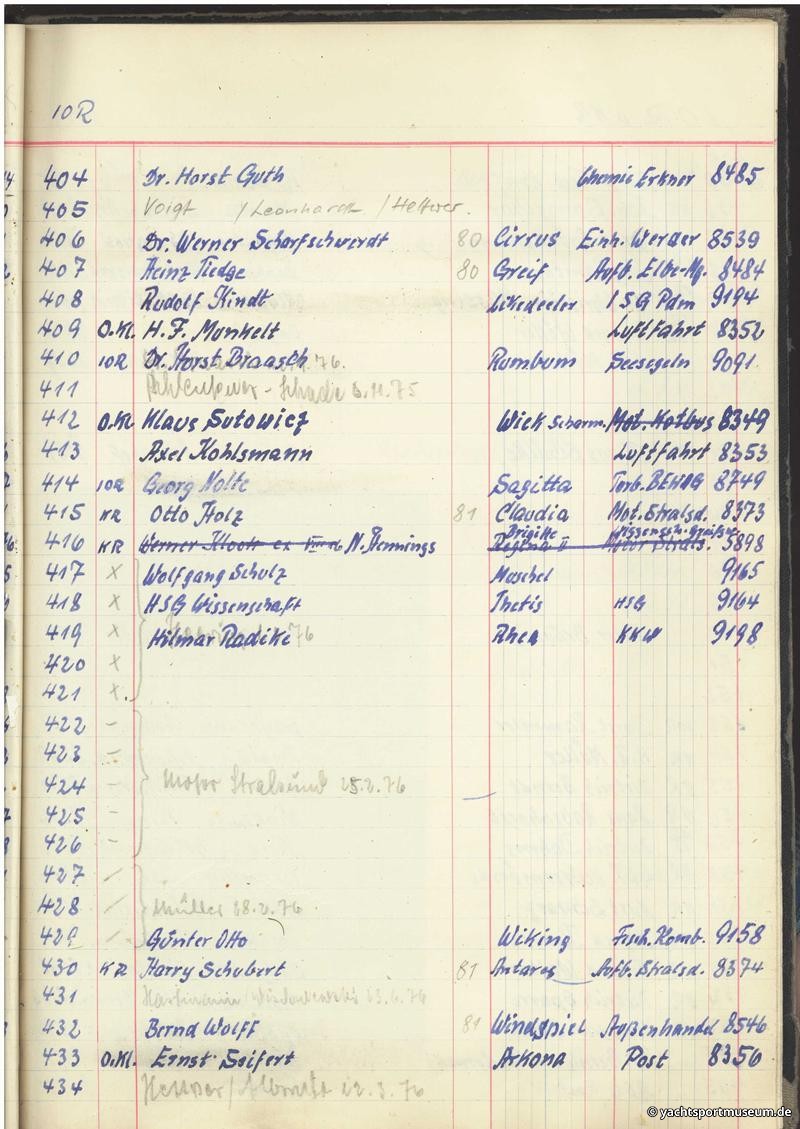 10R
404 Dr. Horst Guth Chemie Erkner 8485
405 Voigt / Leonhardt / Hettwer.
406 Dr. Werner Scharfschwerdt 80 Cirrus Einh. Werder 8539
407 Heinz Tiedge 80 Greif Aufb. Elbe-Mg. 8484
408 Rudolf Kindt Likedeeler ISG Pdm 9194
409 O.Kl. H.F. Munkelt Luftfahrt 8352
410 10R Dr. Horst Draasch 76. Rumbum Seesegeln 9091
411 - Schade 6.11.75
412 O.Kl Klaus Sutowicz Wiek Scharm. Mot. Kotbus 8349
413 Axel Kohlsmann Luftfahrt 8353
414 10R Georg Nolte Sagitta Turb. BEWAG 8749
415 KR Otto Holz 81 Claudia Mot. Stralsd. 8373
416 KR Werner Klootr ex N. Hennings Brigitte Regina II Wissensch. Greifsw. Motor Strals. 5898
417 X Wolfgang Schulz Muschel 9165
418 X HSG Wissenschaft Thetis HSG 9164
419 X Hilmar Radike 76 Rhea KKW 9198
420 X
421 X.
422 -
423 -
424 - Motor Stralsund 25.2.76
425 -
426 -
427 /
428 / Müller 28.2.76
429 / Günter Otto Wiking Fisch. Komb. 9158
430 KR Harry Schubert 81 Antares Aufb. Stralsd. 8374
431 Hartmann 23.6.76
432 Bernd Wolff 81 Windspiel Außenhandel 8546
433 O.Kl. Ernst Seifert Arkona Post 8350
434 Hettwer / Albrecht 22.3.76
© yachtsportmuseum.de